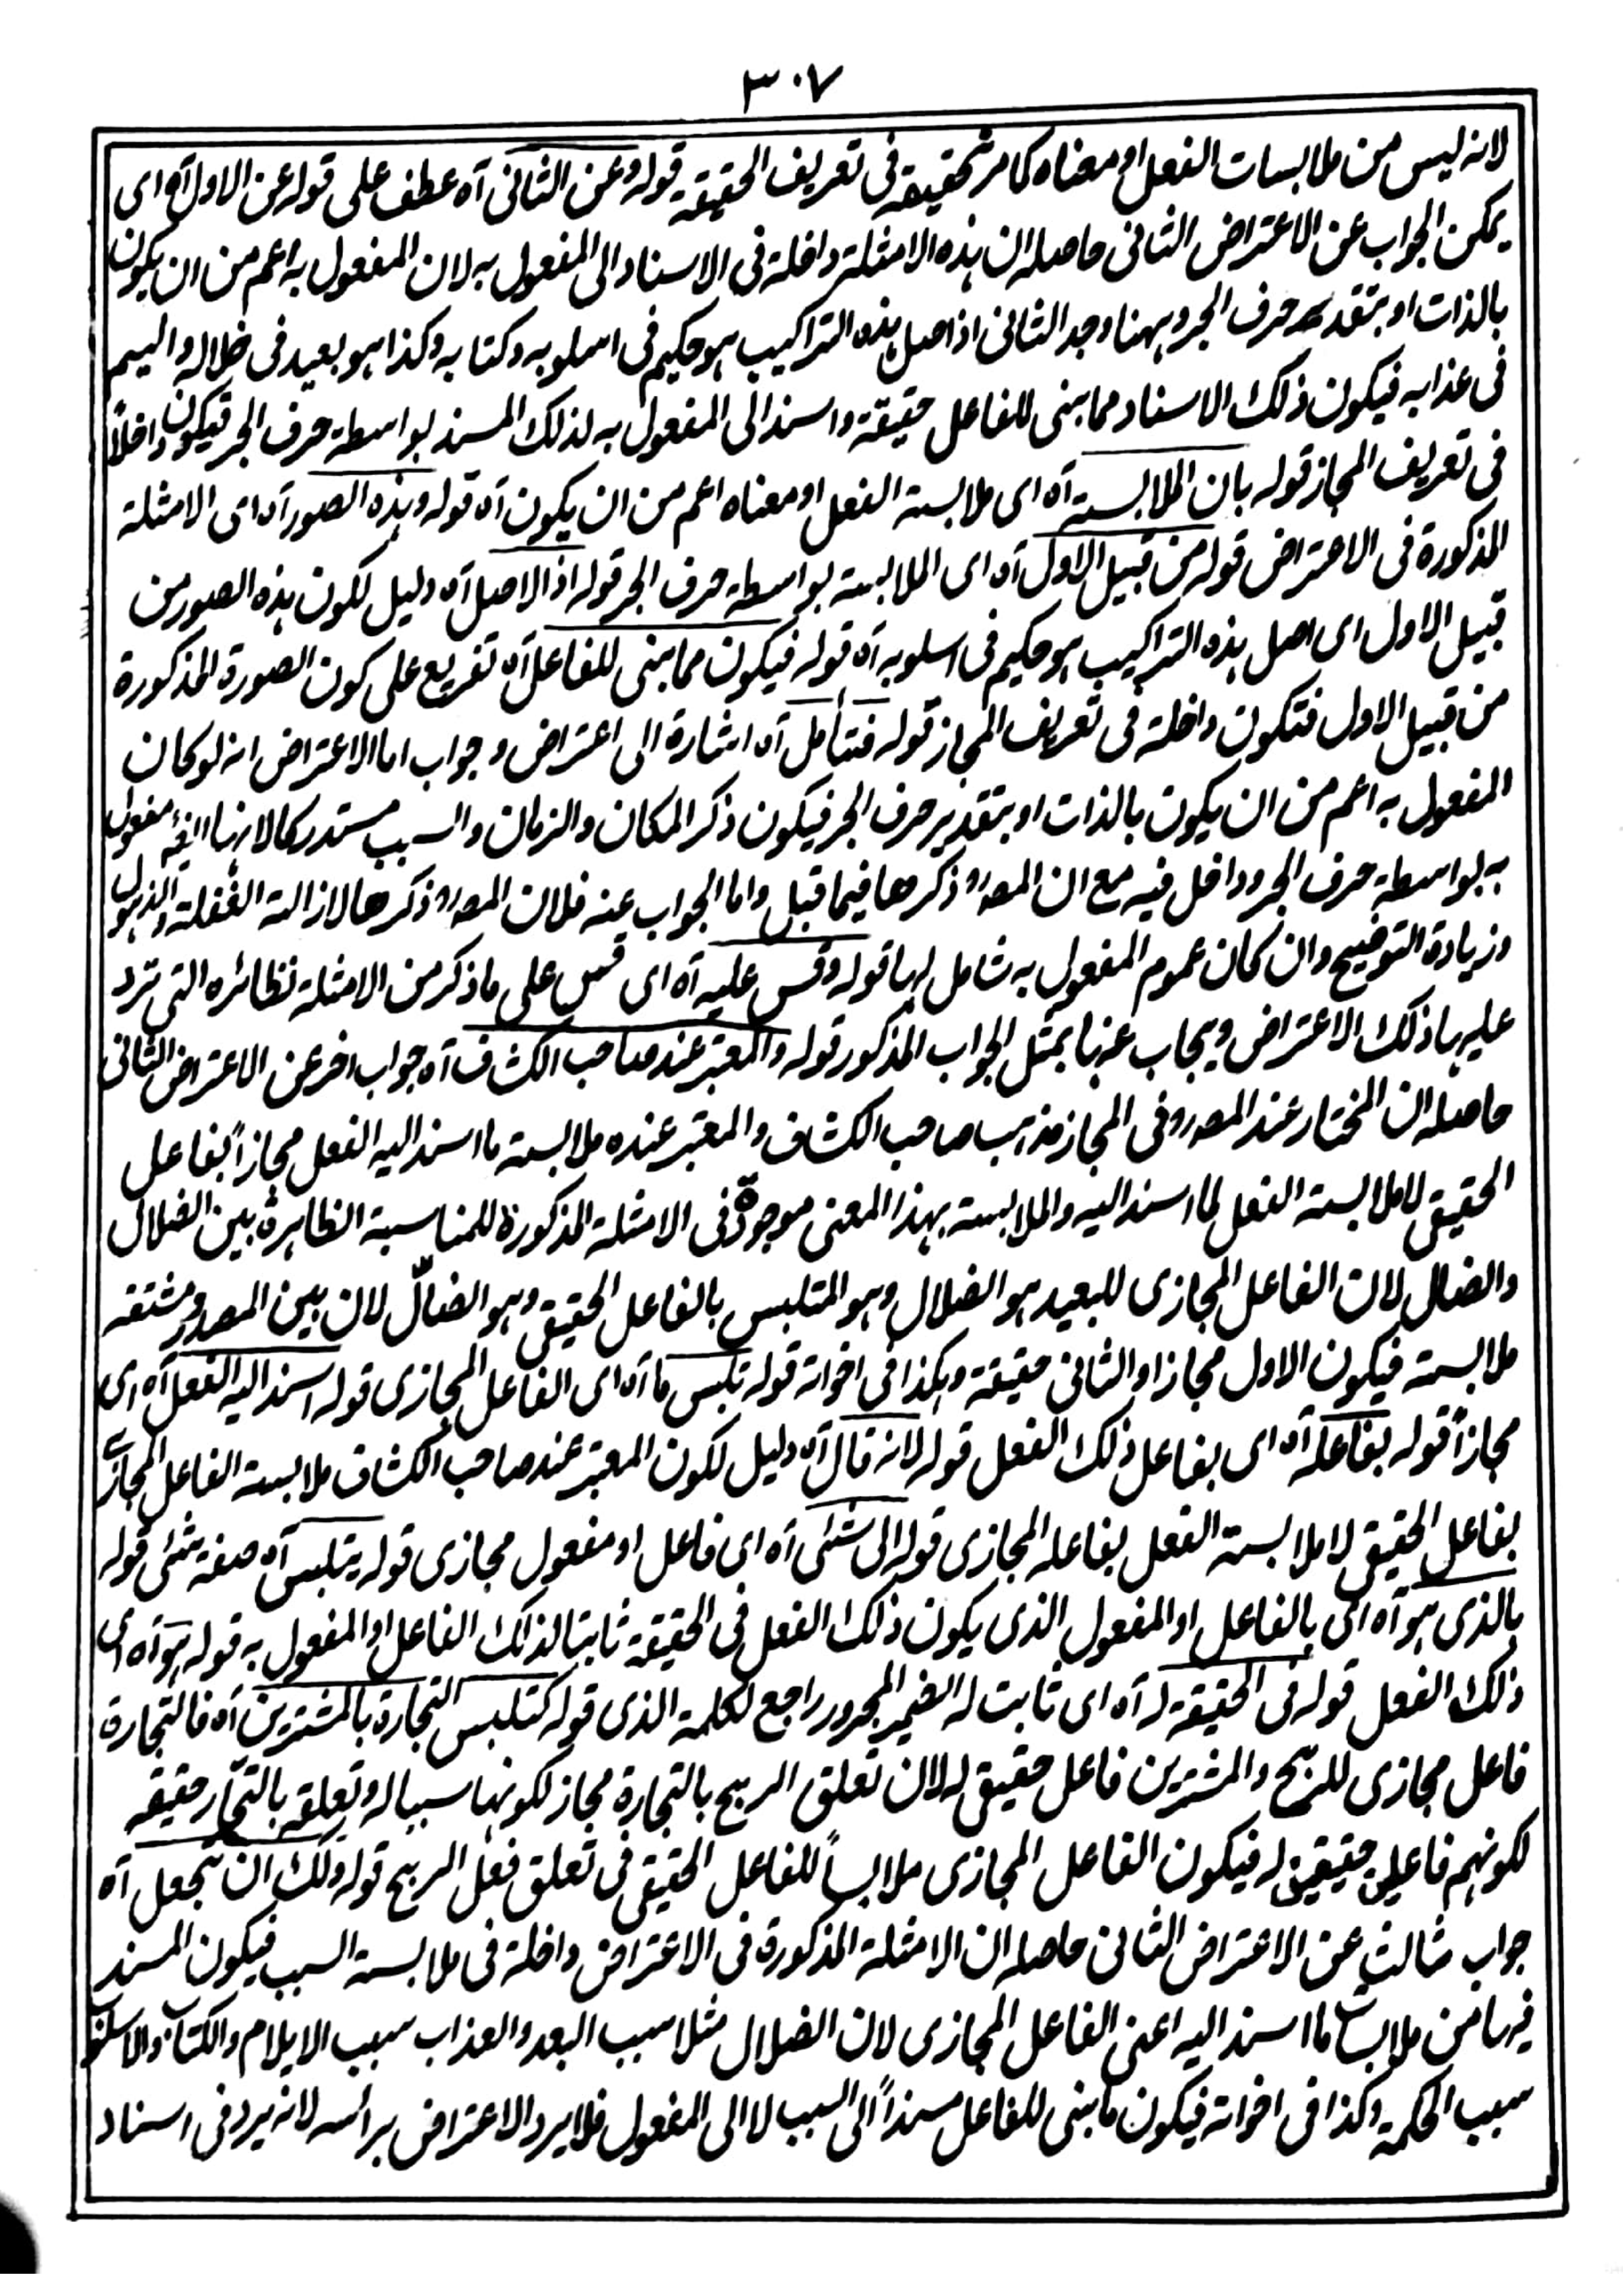 ٣٠٧
لانه ليس من ملابسات الفعل او معناه كما مر تحقيقه فى تعريف الحقيقة قوله وعن الثانى آه عطف على قوله عن الاول آه اى
يمكن الجواب عن الاعتراض الثانى حاصله ان هذه الامثلة داخلة فى الاسناد الى المفعول به لان المفعول به اعم من ان يكون
بالذات او بتقدير حرف الجر وههنا وجد الثانى اذ اصل هذه التراكيب هو حكيم فى اسلوبه وكتابه وكذا هو بعيد فى ضلاله واليم
فى عذابه فيكون ذلك الاسناد مما بنى للفاعل حقيقة واسند الى المفعول به لذلك المسند بواسطة حرف الجر فيكون داخلاً
فى تعريف المجاز قوله بان الملابسة آه اى ملابسة الفعل او معناه اعم من ان يكون آه قوله وهذه الصور آه اى الامثلة
المذكورة فى الاعتراض قوله من قبيل الاول آه اى الملابسة بواسطة حرف الجر قوله اذ الاصل آه دليل لكون هذه الصور من
قبيل الاول اى اصل هذه التراكيب هو حكيم فى اسلوبه آه قوله فيكون مما بنى للفاعل آه تفريع على كون الصورة المذكورة
من قبيل الاول فتكون داخلة فى تعريف المجاز قوله فتأمل آه اشارة الى اعتراض وجواب اما الاعتراض انه لو كان
المفعول به اعم من ان يكون بالذات او بتقدير حرف الجر فيكون ذكر المكان والزمان والسبب مستدركا لانها ايضا مفعول
به بواسطة حرف الجر وداخل فيه مع ان المصـ ذكرها فيما قبل واما الجواب عنه فلان المصـ ذكرها لازالة الغفلة والذهول
وزيادة التوضيح وان كان عموم المفعول به شامل لها قوله وقس عليه آه اى قس على ما ذكر من الامثلة نظائره التى ترد
عليها ذلك الاعتراض ويجاب عنها بمثل الجواب المذكور قوله والمعتبر عند صاحب الكشاف آه جواب اخر عن الاعتراض الثانى
حاصله ان المختار عند المصـ فى المجاز مذهب صاحب الكشاف والمعتبر عنده ملابسة ما اسند اليه الفعل مجازاً بفاعل
الحقيقى لا ملابسة الفعل لما اسند اليه والملابسة بهذا المعنى موجودة فى الامثلة المذكورة للمناسبة الظاهرة بين الضلال
والضال لان الفاعل المجازى للبعيد هو الضلال وهو المتلبس بالفاعل الحقيقى وهو الضالّ لان بين المصدر ومشتقه
ملابسة فيكون الاول مجازا والثانى حقيقة وهكذا فى اخواته قوله تلبس ما آه اى الفاعل المجازى قوله اسند اليه الفعل آه اى
مجازاً قوله بفاعله آه اى بفاعل ذلك الفعل قوله لانه قال آه دليل لكون المعتبر عند صاحب الكشاف ملابسة الفاعل المجازى
بفاعل الحقيقى لا ملابسة الفعل بفاعله المجازى قوله الى شئ آه اى فاعل او مفعول مجازى قوله يتلبس آه صفة شئ قوله
بالذى هو آه اى بالفاعل او المفعول الذى يكون ذلك الفعل فى الحقيقة ثابتا لذلك الفاعل او المفعول به قوله هو آه اى
ذلك الفعل قوله فى الحقيقة له آه اى ثابت له الضمير المجرور راجع لكلمة الذى قوله كتلبس التجارة بالمشترين آه فالتجارة
فاعل مجازى للربح والمشترين فاعل حقيقى له لان تعلق الربح بالتجارة مجاز لكونها سببا له وتعلقه بالتجّار حقيقة
لكونهم فاعلين حقيقين له فيكون الفاعل المجازى ملابساً للفاعل الحقيقى فى تعلق فعل الربح قوله ولك ان تجعل آه
جواب ثالث عن الاعتراض الثانى حاصله ان الامثلة المذكورة فى الاعتراض داخلة فى ملابسة السبب فيكون المسند
فيها من ملابسات ما اسند اليه اعنى الفاعل المجازى لان الضلال مثلا سبب البعد والعذاب سبب الايلام والكتاب والاسلوب
سبب الحكمة وكذا فى اخواته فيكون ما بنى للفاعل مسنداً الى السبب لا الى المفعول فلا يرد الاعتراض برأسه لانه يرد فى اسناد